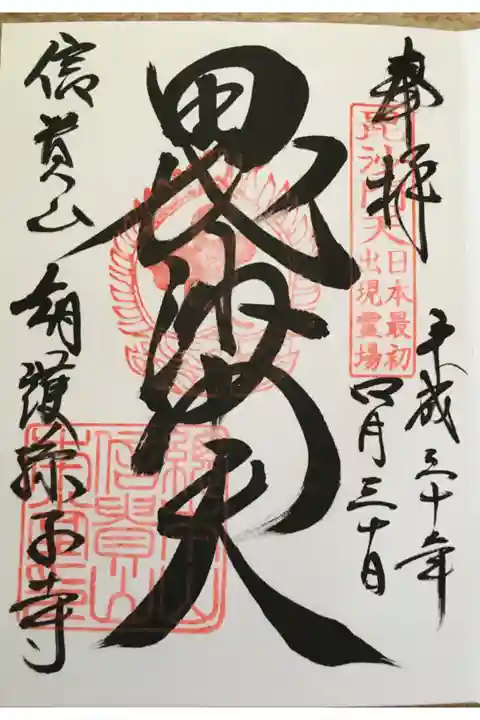 奉拝
毘沙門天
日本最初
出現霊場
平成三十年
四月三十日
毘沙門天
信貴山
信貴山 朝護孫子寺